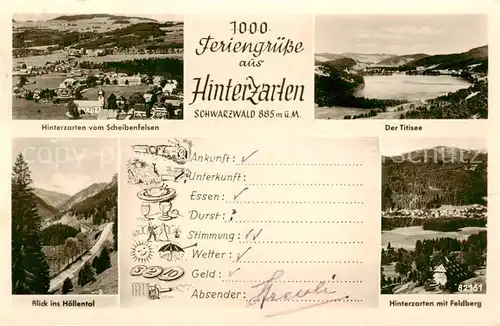 1000
Feriengrüße
aus
Hinterzarten
SCHWARZWALD 885 m ü.M.
Hinterzarten vom Scheibenfelsen
Der Titisee
Ankunft: ✓
Unterkunft:
Essen: ✓
Durst: ?
Stimmung: 11
Wetter: ✓
Geld: ✓
Absender:
Blick ins Höllental
82161
Hinterzarten mit Feldberg